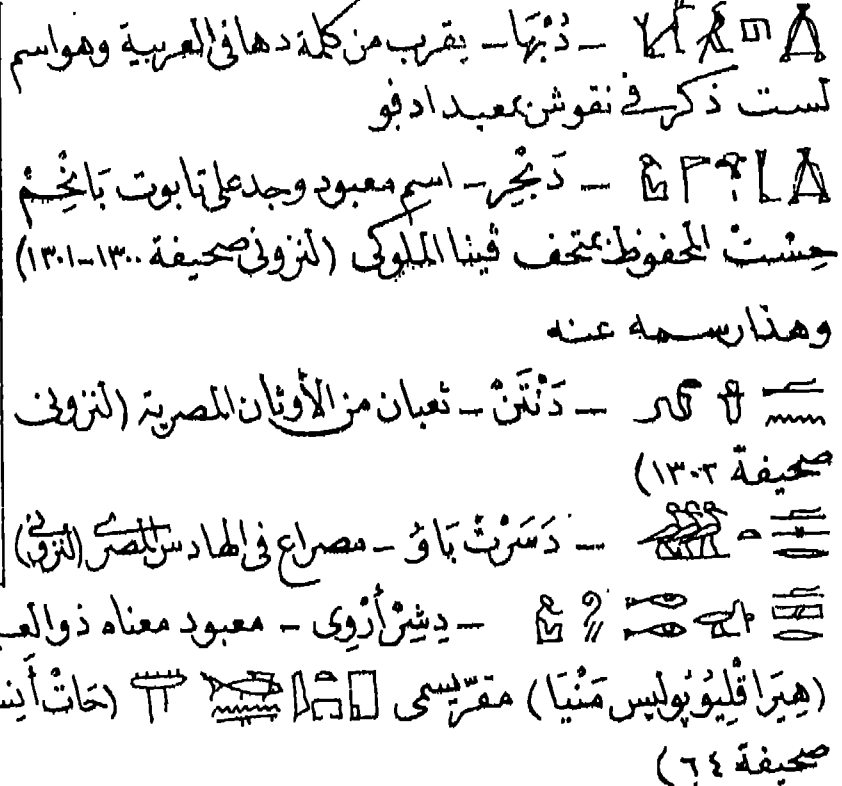 ـ دُبْهَا ـ يقرب من كلمة دها فى العربية وهو اسم
لست ذكر فى نقوش بمعبد ادفو
ـ دَبْخِر ـ اسم معبود وجد على تابوت بَانْخِمْ
حِسْتْ المحفوظ بمتحف ڤينا الملوكى (لنزونى صحيفة ١٣٠٠ـ١٣٠١)
وهذا رسمه عنه
ـ دَنْتَنْ ـ ثعبان من الأوثان المصرية (لنزونى
صحيفة ١٣٠٢)
ـ دَسَرْتْ بَاوُ ـ مصراع فى الهادس المصرى (لنزونى)
ـ دِشِرْ أَرْوِى ـ معبود معناه ذو العـ
(هِيَرَا قْلِيُوپُوليس مَنْيَا) مقرّ يسمى (حَاتْ أَنِسـ
صحيفة ٦٤)